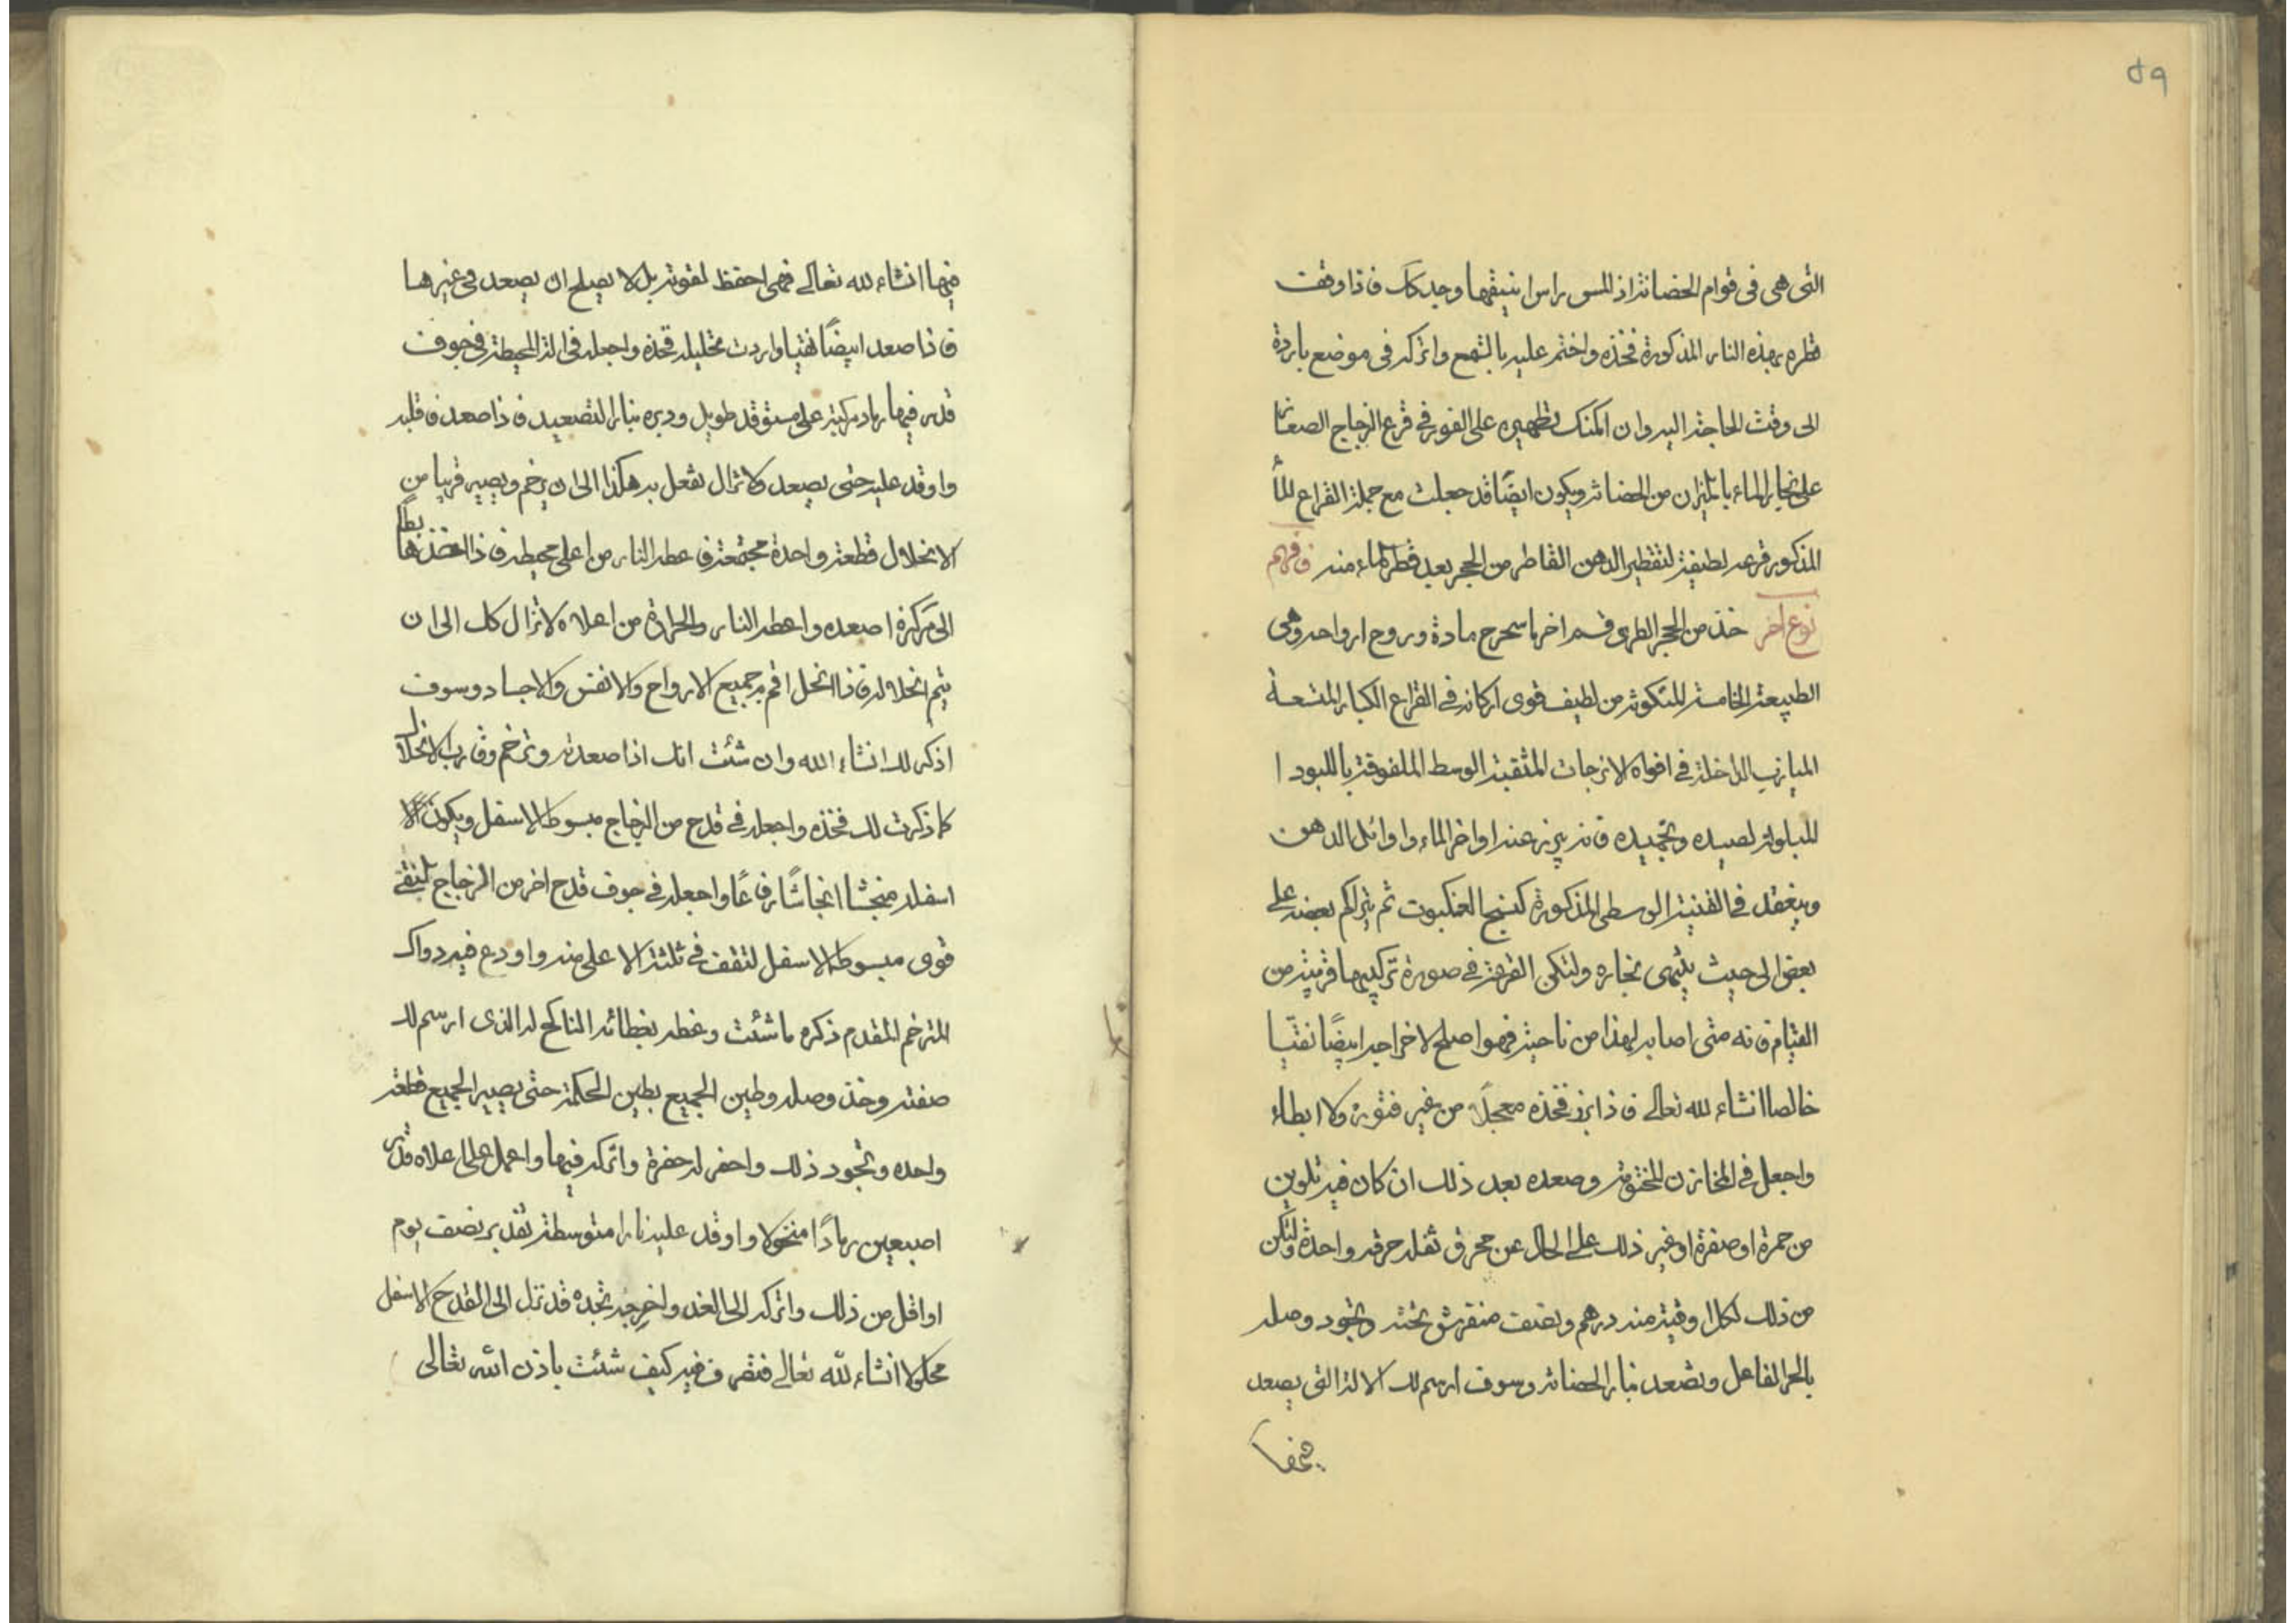 ٥٩
التى هى فى قوام الحضانة اذ المس راس انبيقها وجد كك فاذا وقفت
قطره بهذه النار المذكورة فخذه واختم عليه بالشمع واتركه فى موضع باردة
الى وقت الحاجة اليه وان امكنك تطهيره على الفور فى قرع الزجاج الصغار
على بخار الماء بالميزان من الحضانة ويكون ايضًا قد جعلت مع جملة القراع للماء
المذكور قرعه لطيفة لتقطير الدهن القاطر من الحجر بعد قطر الماء منه فافهم
نوع آخر خذ من الحجر الطرى قسم اخر ما سحرح مادة وروح ارواحه وهى
الطبيعة الخامسة المتكونة من لطيف قوى اركانه فى القراع الكبار المتسعة
الميازيب الداخلة فى افواه الانزجات المثقبة الوسط الملفوقة باللبود ا
للمبلولة لصيده وتجميده فانه يبرز عند اواخر الماء واوائل الدهن
وينعقد فى القنية الوسطى المذكورة كنسج العنكبوت ثم يتراكم بعضه على
بعض الى حيث ينتهى بخاره ولتكن القرعة فى صورة تركيبها قريبة من
القيام فانه متى اصابه لهذا من ناحية فهو اصلح لاخراجه ابيضًا نقيّا
خالصا انشاء لله تعالى فاذا برز فخذه معجلًا من غير فتور ولا ابطاء
واجعل فى المخازن المختومة وصعده بعد ذلك ان كان فيه تلوين
من حمرة او صفرة او غير ذلك على الحال عن محرق ثفله حرقه واحدة وليكن
من ذلك لكل اوقية منه درهم ونصف منفرش تحته وتجود وصله
بالحر الفاعل وتصعد بنار الحضانة وسوف ارسم لك الالة التى يصعد
فيها انشاء لله تعالى فهى احفظ لقوته بل لا يصلح ان يصعد فى غيرها
فاذا صعد ابيضًا نقيا واردت تحليله فخذه واجعله فى الالة المحيطة فى جوف
قدر فيها رماد مركبة على مستوقد طويل ودبره بنار التصعيد فاذا صعد فاقلبه
واوقد عليه حتى يصعد ولا تزال تفعل به هكذا الى ان يرخم ويصير قريبا من
الانحلال قطعة واحدة مجتمعة فاعطه النار من اعلى محيطه فاذا هابطًا
الى مركزه اصعده واعطه النار والحرارة من اعلاه ولا تزال كك الى ان
يتم انحلاله فاذا انحل اقم به جميع الارواح والانفس والاجساد وسوف
اذكر لك انشاء الله وان شئت انك اذا صعدته وترخم وقارب الانحلال
كما ذكرت لك فخذه واجعله فى قدح من الزجاج مبسوط الاسفل ويكون
اسفله منجشا انجاشًا رفاعًا واجعله فى جوف قدح اخر من الزجاج
قوى مبسوط الاسفل لتقف فى ثلثه الاعلى منه واودع فيه دواك
المترخم المقدم ذكره ما شئت وغطه بغطائه الناكح له الذى ارسم لك
صفته وخذ وصله وطين الجميع بطين الحكمة حتى يصير الجميع قطعة
واحده وتجود ذلك واحفر له حفرة واتركه فيها واعمل على اعلاه قدر
اصبعين رمادًا منخولا واوقد عليه نارا متوسطة تقدير نصف يوم
او اقل من ذلك واتركه الى الغد واخرجه تجده قد نزل الى القدح الاسفل
محلولا انشاء لله تعالى فتصرف فيه كيف شئت باذن الله تعالى